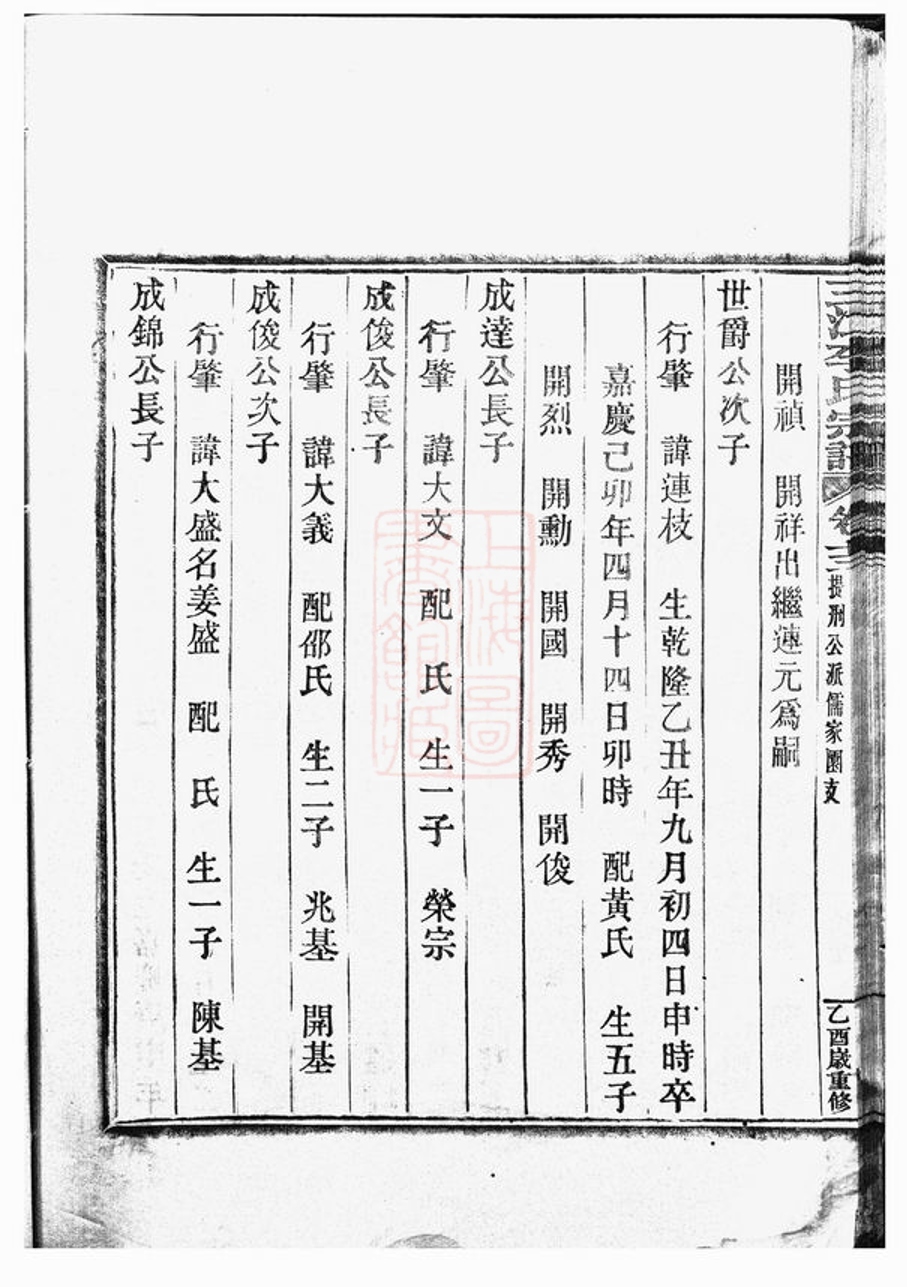 三江李氏宗譜 卷三 提刑公派儒家園支 乙酉歲重修
開禎 開祥出繼蓮元爲嗣
世爵公次子
行肇 諱連枝 生乾隆乙丑年九月初四日申時卒
嘉慶己卯年四月十四日卯時 配黃氏 生五子
開烈 開勳 開國 開秀 開俊
成達公長子
行肇 諱大文 配 氏 生一子 榮宗
成俊公長子
行肇 諱大義 配邵氏 生二子 兆基 開基
成俊公次子
行肇 諱大盛名姜盛 配 氏 生一子 陳基
成錦公長子
上海圖書館藏